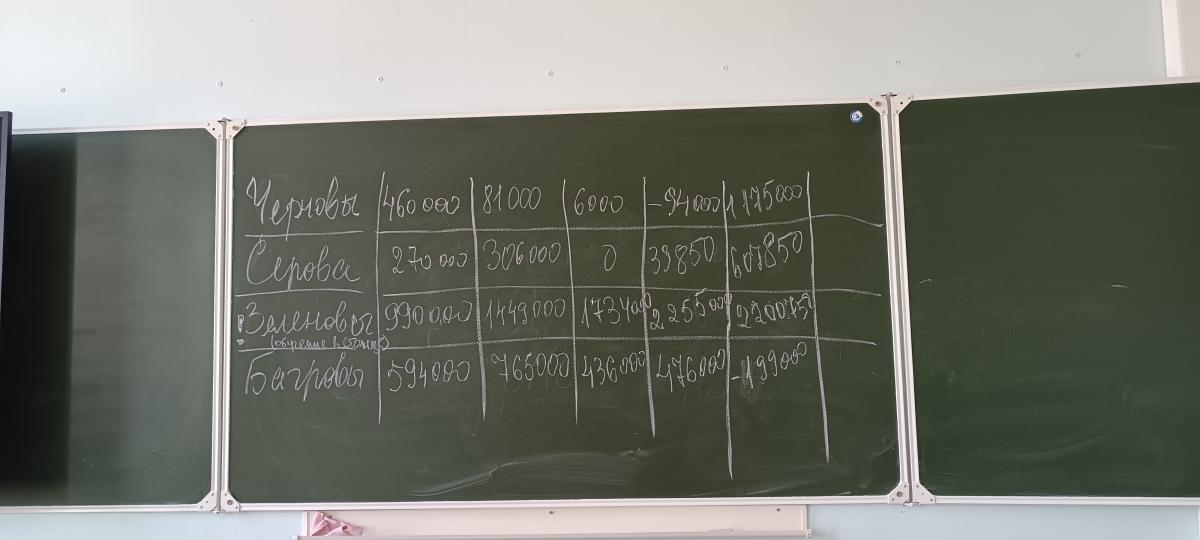 Черновы 460000 81000 6000 -94000 1175000
Серова 270000 306000 0 39850 607850
! Зеленовы 990000 1449000 1734000 2255000 2200750
Багровы 594000 765000 436000 476000 -199000